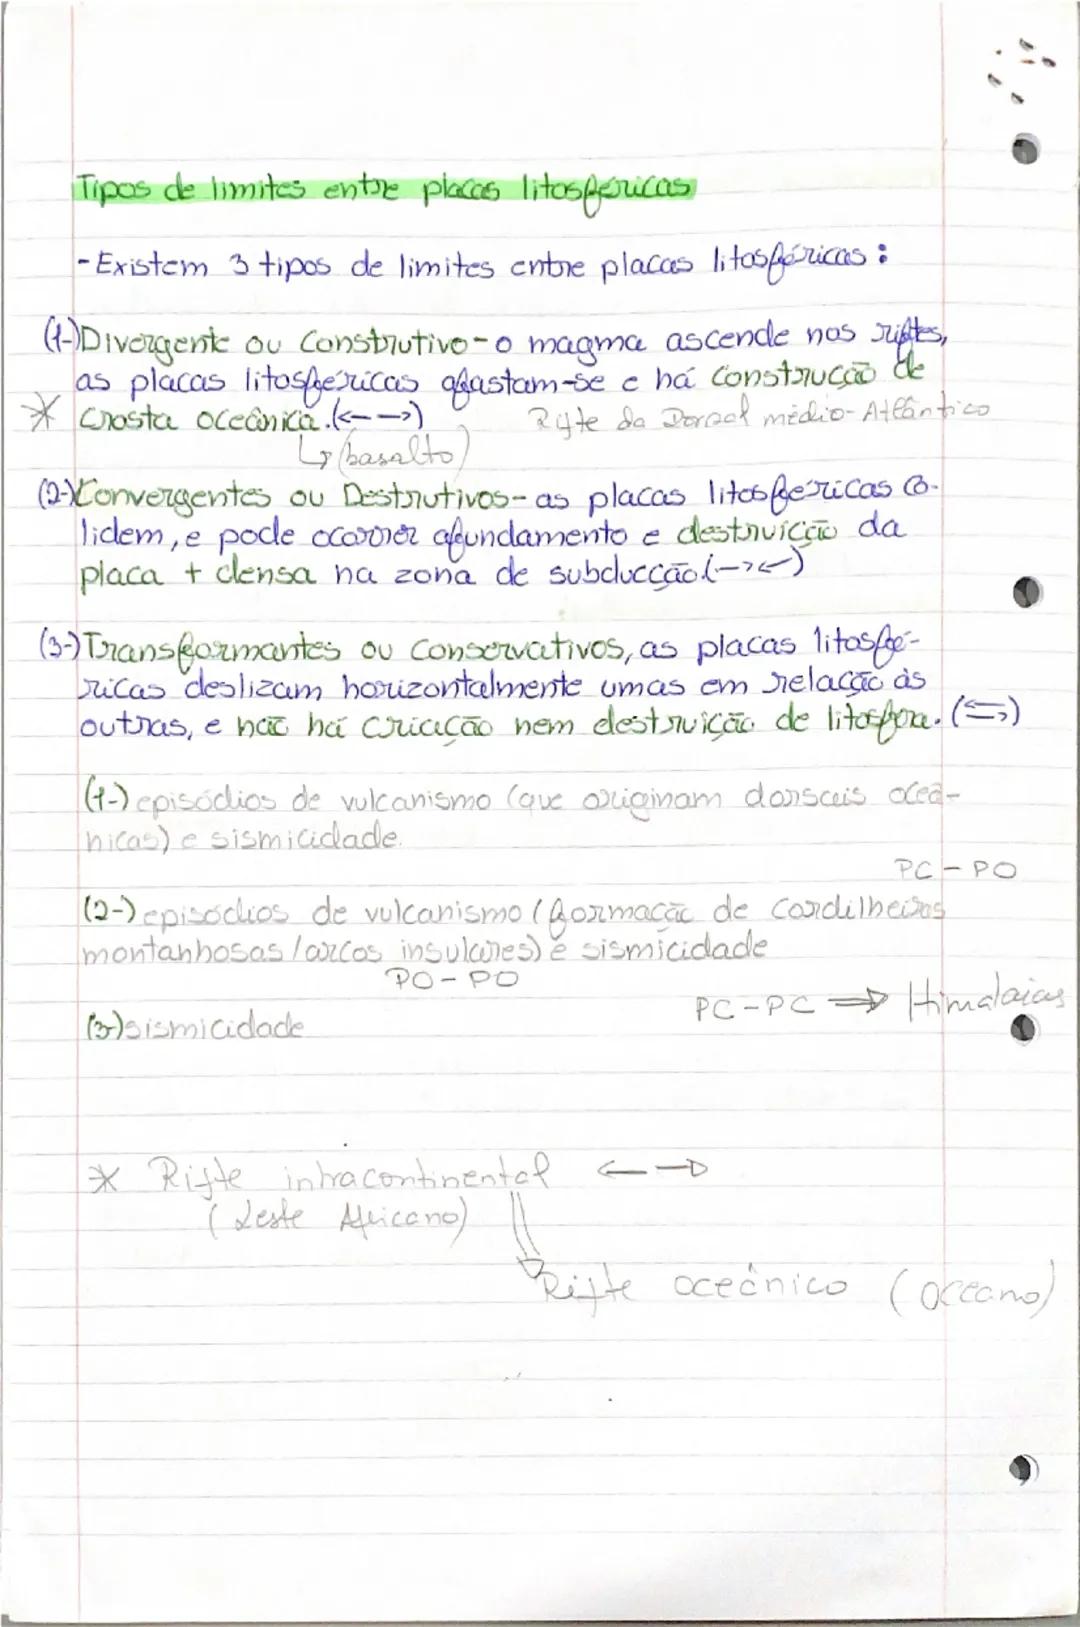 Tipos de limites entre placas litosféricas
- Existem 3 tipos de limites entre placas litosféricas :
(1-) Divergente ou Construtivo - o magma ascende nos riftes,
as placas litosféricas afastam-se e há construção de
* Crosta oceânica. (<- ->) Rifte da Dorsal médio-Atlântico
↳ (basalto)
(2-) Convergentes ou Destrutivos - as placas litosféricas co-
lidem, e pode ocorrer afundamento e destruicção da
placa + densa na zona de subducção. (-><-)
(3-) Transformantes ou Conservativos, as placas litosfé-
ricas deslizam horizontalmente umas em relacção às
outras, e não há criação nem destruição de litosfera. (⇆)
(1-) episódios de vulcanismo (que originam dorsais oceâ-
nicas) e sismicidade.
PC - PO
(2-) episódios de vulcanismo (formação de Cordilheiras
montanhosas / arcos insulares) e sismicidade
PO - PO
PC - PC ⇒ Himalaias
(3-) sismicidade
* Rifte intracontinental <- ->
(Leste Africano) ⇓
Rifte oceânico (oceano)